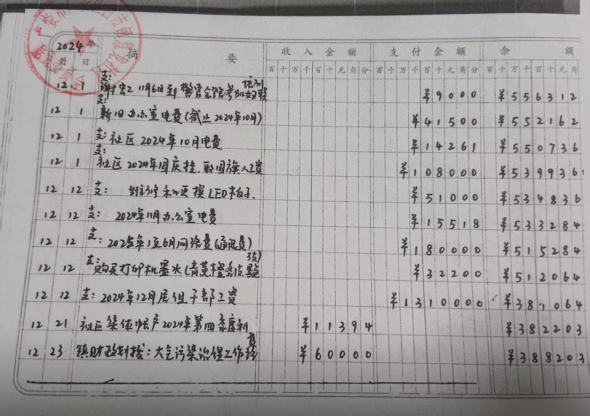 2024
月 日 摘 要 收入金额 支付金额 余 额
百十万千百十元角分 百十万千百十元角分 百十万千百十元角
12 1 支: 11月6日到 ¥9000 ¥556312
12 1 支: 新旧办公室电费(截止2024年10月) ¥41500 ¥552162
12 1 支: 社区2024年10月电费 ¥14261 ¥550736
12 1 支: 社区2024年国庆挂、取国旗人工资 ¥108000 ¥539936
12 12 支: 维修和更换LED ¥51000 ¥534836
12 12 支: 2024年11月办公室电费 ¥15518 ¥533284
12 12 支: 2025年1至6月网络费(通讯费) ¥180000 ¥515284
12 12 支: 购买打印机墨水 ¥32200 ¥512064
12 12 支: 2024年12月居组干部工资 ¥1310000 ¥381064
12 21 社区集体帐户2024年第四季度利 ¥11394 ¥382203
12 23 镇财政划拨:大气污染治理工作经费 ¥60000 ¥388203